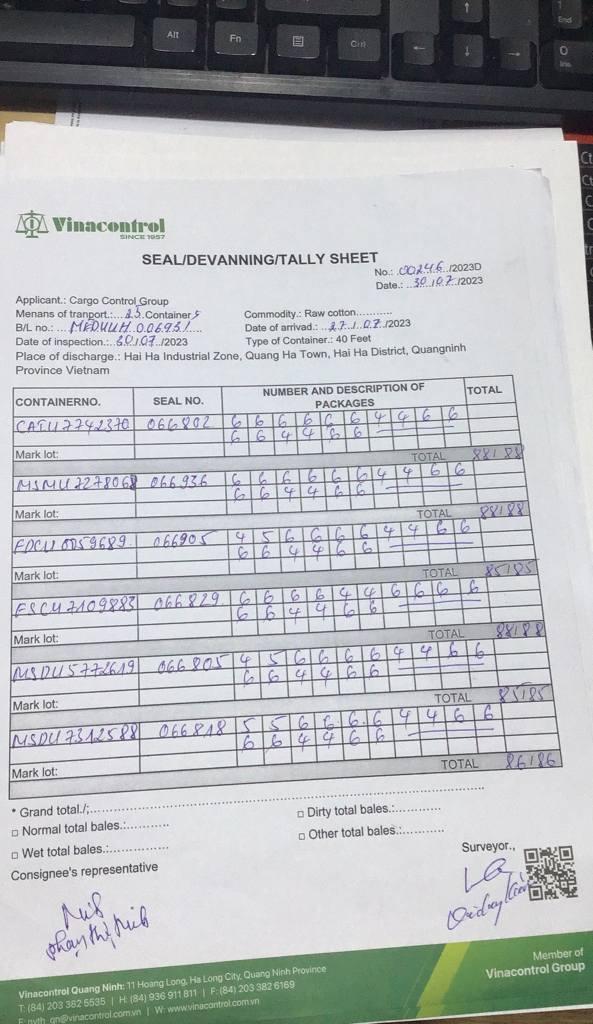 Alt
Fn
Ctrl
End
0
Ins
Vinacontrol
SINCE 1957
SEAL/DEVANNING/TALLY SHEET
No.: 00246./2023D
Date.: 30.07./2023
Applicant.: Cargo Control Group
Menans of tranport.: 23.Container s Commodity.: Raw cotton
B/L no.: MEDUUH.006931 Date of arrivad.: 27./.07./2023
Date of inspection.: 30/07./2023 Type of Container.: 40 Feet
Place of discharge.: Hai Ha Industrial Zone, Quang Ha Town, Hai Ha District, Quangninh
Province Vietnam
CONTAINERNO. SEAL NO. NUMBER AND DESCRIPTION OF PACKAGES TOTAL
CATU7742370 066802 6 6 6 6 6 6 4 4 6 6
6 6 4 4 6 6
Mark lot: TOTAL 88/88
MSMU7278068 066936 6 6 6 6 6 6 4 4 6 6
6 6 4 4 6 6
Mark lot: TOTAL 88/88
FDCU0059689 066905 4 5 6 6 6 6 4 4 6 6
6 6 4 4 6 6
Mark lot: TOTAL 85/85
FSCU7109883 066829 6 6 6 6 4 4 6 6 6 6
6 6 4 4 6 6
Mark lot: TOTAL 88/88
MSDU5772619 066805 4 5 6 6 6 6 4 4 6 6
6 6 4 4 6 6
Mark lot: TOTAL 85/85
MSDU7312588 066818 5 5 6 6 6 6 4 4 6 6
6 6 4 4 6 6
Mark lot: TOTAL 86/86
* Grand total./;
□ Normal total bales.: □ Dirty total bales.:
□ Wet total bales.: □ Other total bales.:
Consignee's representative Surveyor.,
Vinacontrol Quang Ninh: 11 Hoang Long, Ha Long City, Quang Ninh Province
T: (84) 203 382 5535 | H: (84) 936 911 811 | F: (84) 203 382 6169
qn@vinacontrol.com.vn | W: www.vinacontrol.com.vn
Member of
Vinacontrol Group